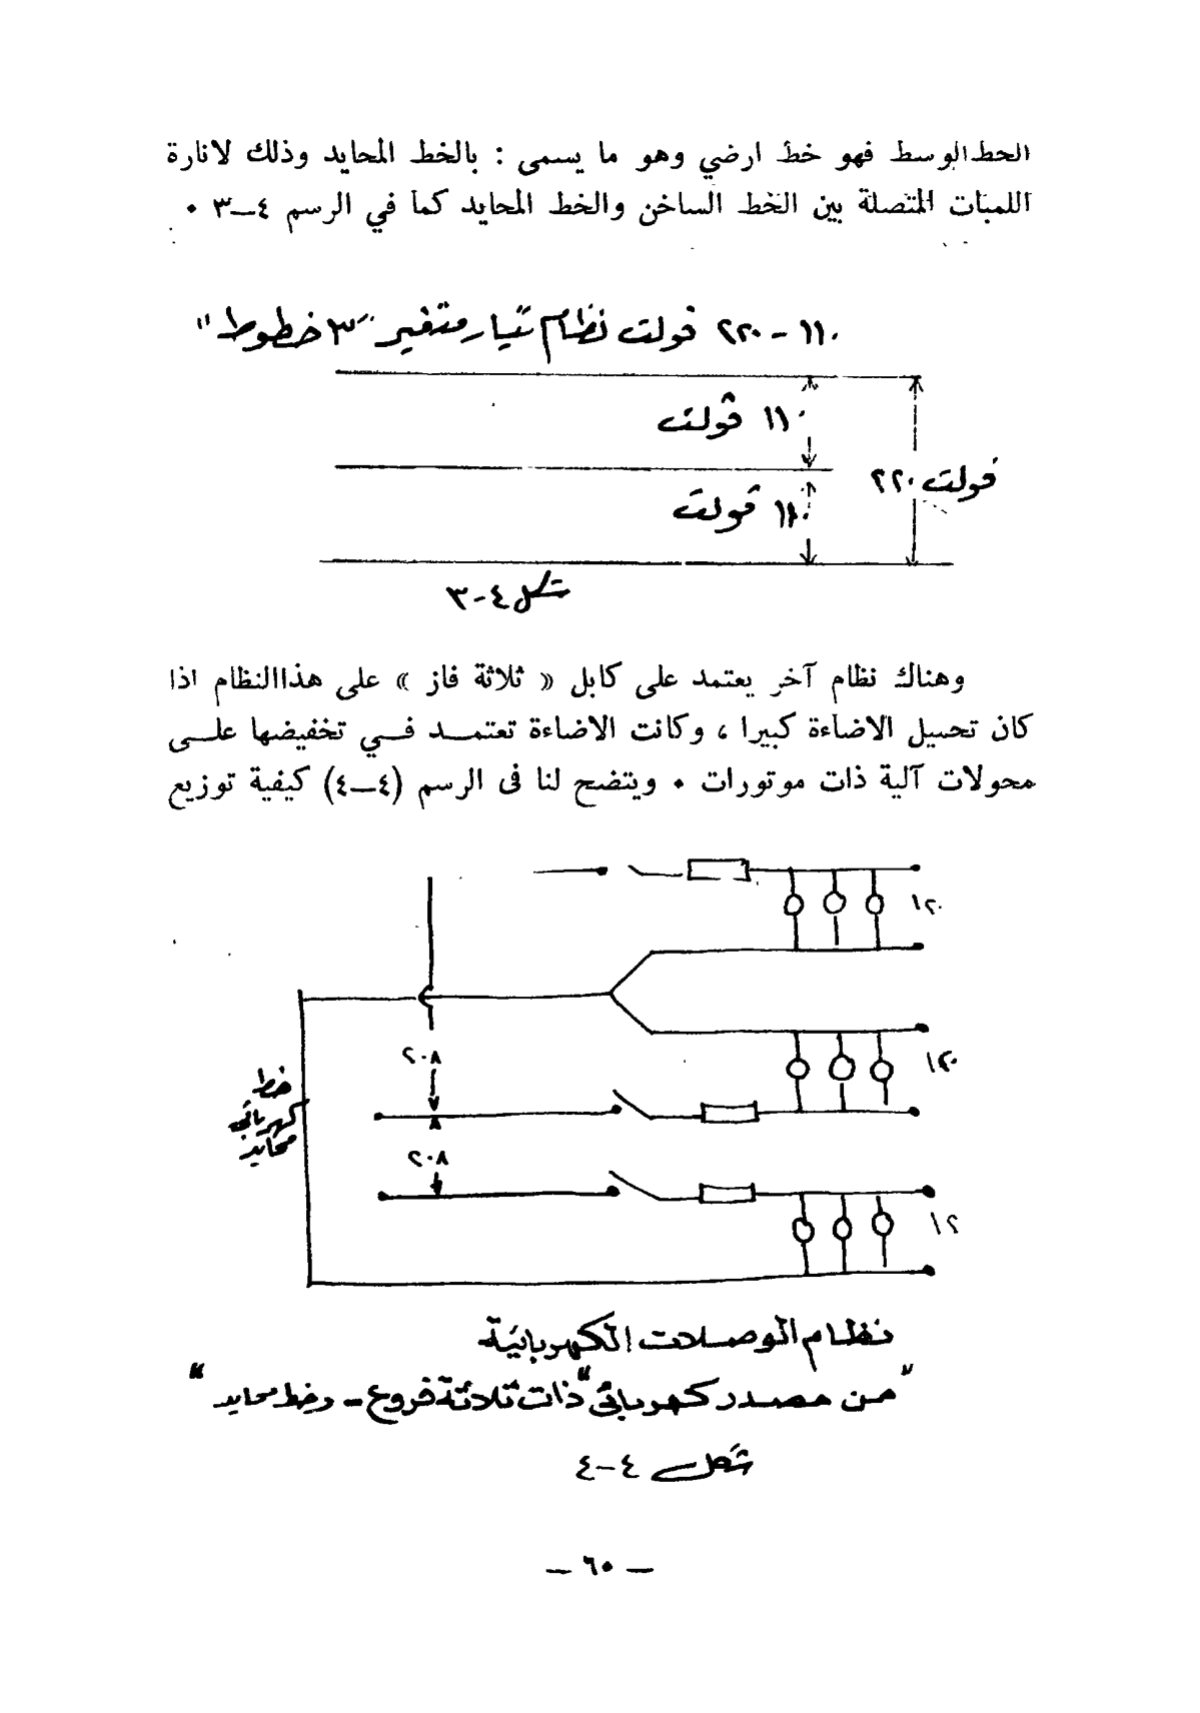 الخط الوسط فهو خط ارضي وهو ما يسمى : بالخط المحايد وذلك لانارة
اللمبات المتصلة بين الخط الساخن والخط المحايد كما في الرسم ٤—٣ ٠
١١٠ - ٢٢٠ فولت نظام تيار متغير "٣ خطوط"
١١٠ فولت
٢٢٠ فولت
١١٠ فولت
شكل ٤-٣
وهناك نظام آخر يعتمد على كابل « ثلاثة فاز » على هذا النظام اذا
كان تحميل الاضاءة كبيرا ، وكانت الاضاءة تعتمد في تخفيضها على
محولات آلية ذات موتورات ٠ ويتضح لنا فى الرسم (٤—٤) كيفية توزيع
١٢٠
٢٠٨
١٢٠
خط
كهربائي
محايد
٢٠٨
١٢
نظام الوصلات الكهربائية
"من مصدر كهربائى "ذات ثلاثة فروع - وخط محايد"
شكل ٤-٤
— ٦٥ —